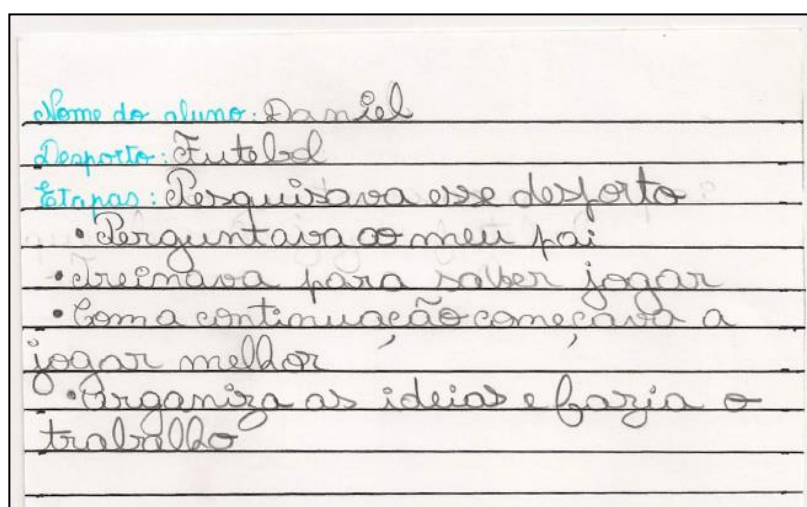 Nome do aluno: Daniel
Desporto: Futebol
Etapas: Pesquisava esse desporto
• Perguntava ao meu pai
• Treinava para saber jogar
• Com a continuação começava a
jogar melhor
• Organiza as ideias e fazia o
trabalho